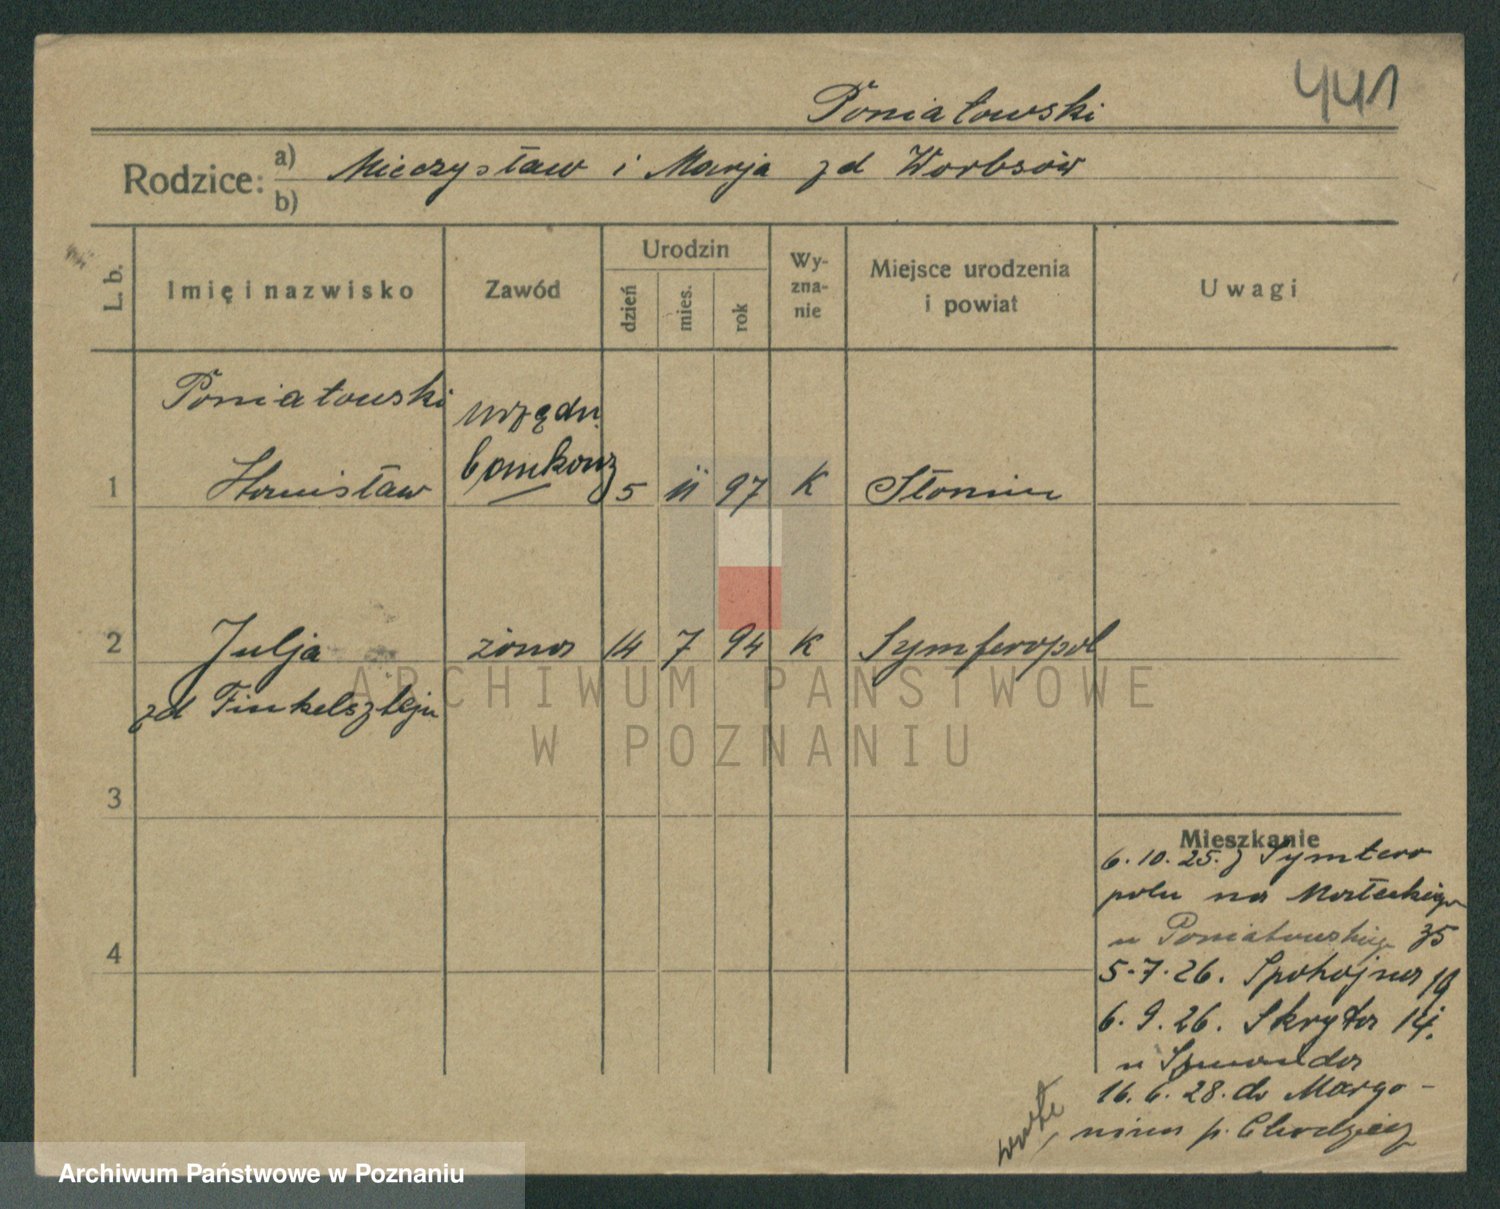 441
Poniatowski
Rodzice:
a) Mieczysław i Marja zd Worbsów
b)
L. b.
Imię i nazwisko
Zawód
Urodzin
dzień
mies.
rok
Wy-
zna-
nie
Miejsce urodzenia
i powiat
Uwagi
Poniatowski urzędn.
1 Stanisław bankowy 5 11 97 K Słonim
2 Julja żona 14 7 94 K Symferopol
zd Finkelsztejn
3
4
Mieszkanie
6.10.25. z Symfero
polu na Małeckiego
u Poniatowskieg 35
5.7.26. Spokojna 19
6.9.26. Skryta 14.
u
16.6.28. do Margo-
nina p. Chodzież
ARCHIWUM PAŃSTWOWE
W POZNANIU
Archiwum Państwowe w Poznaniu